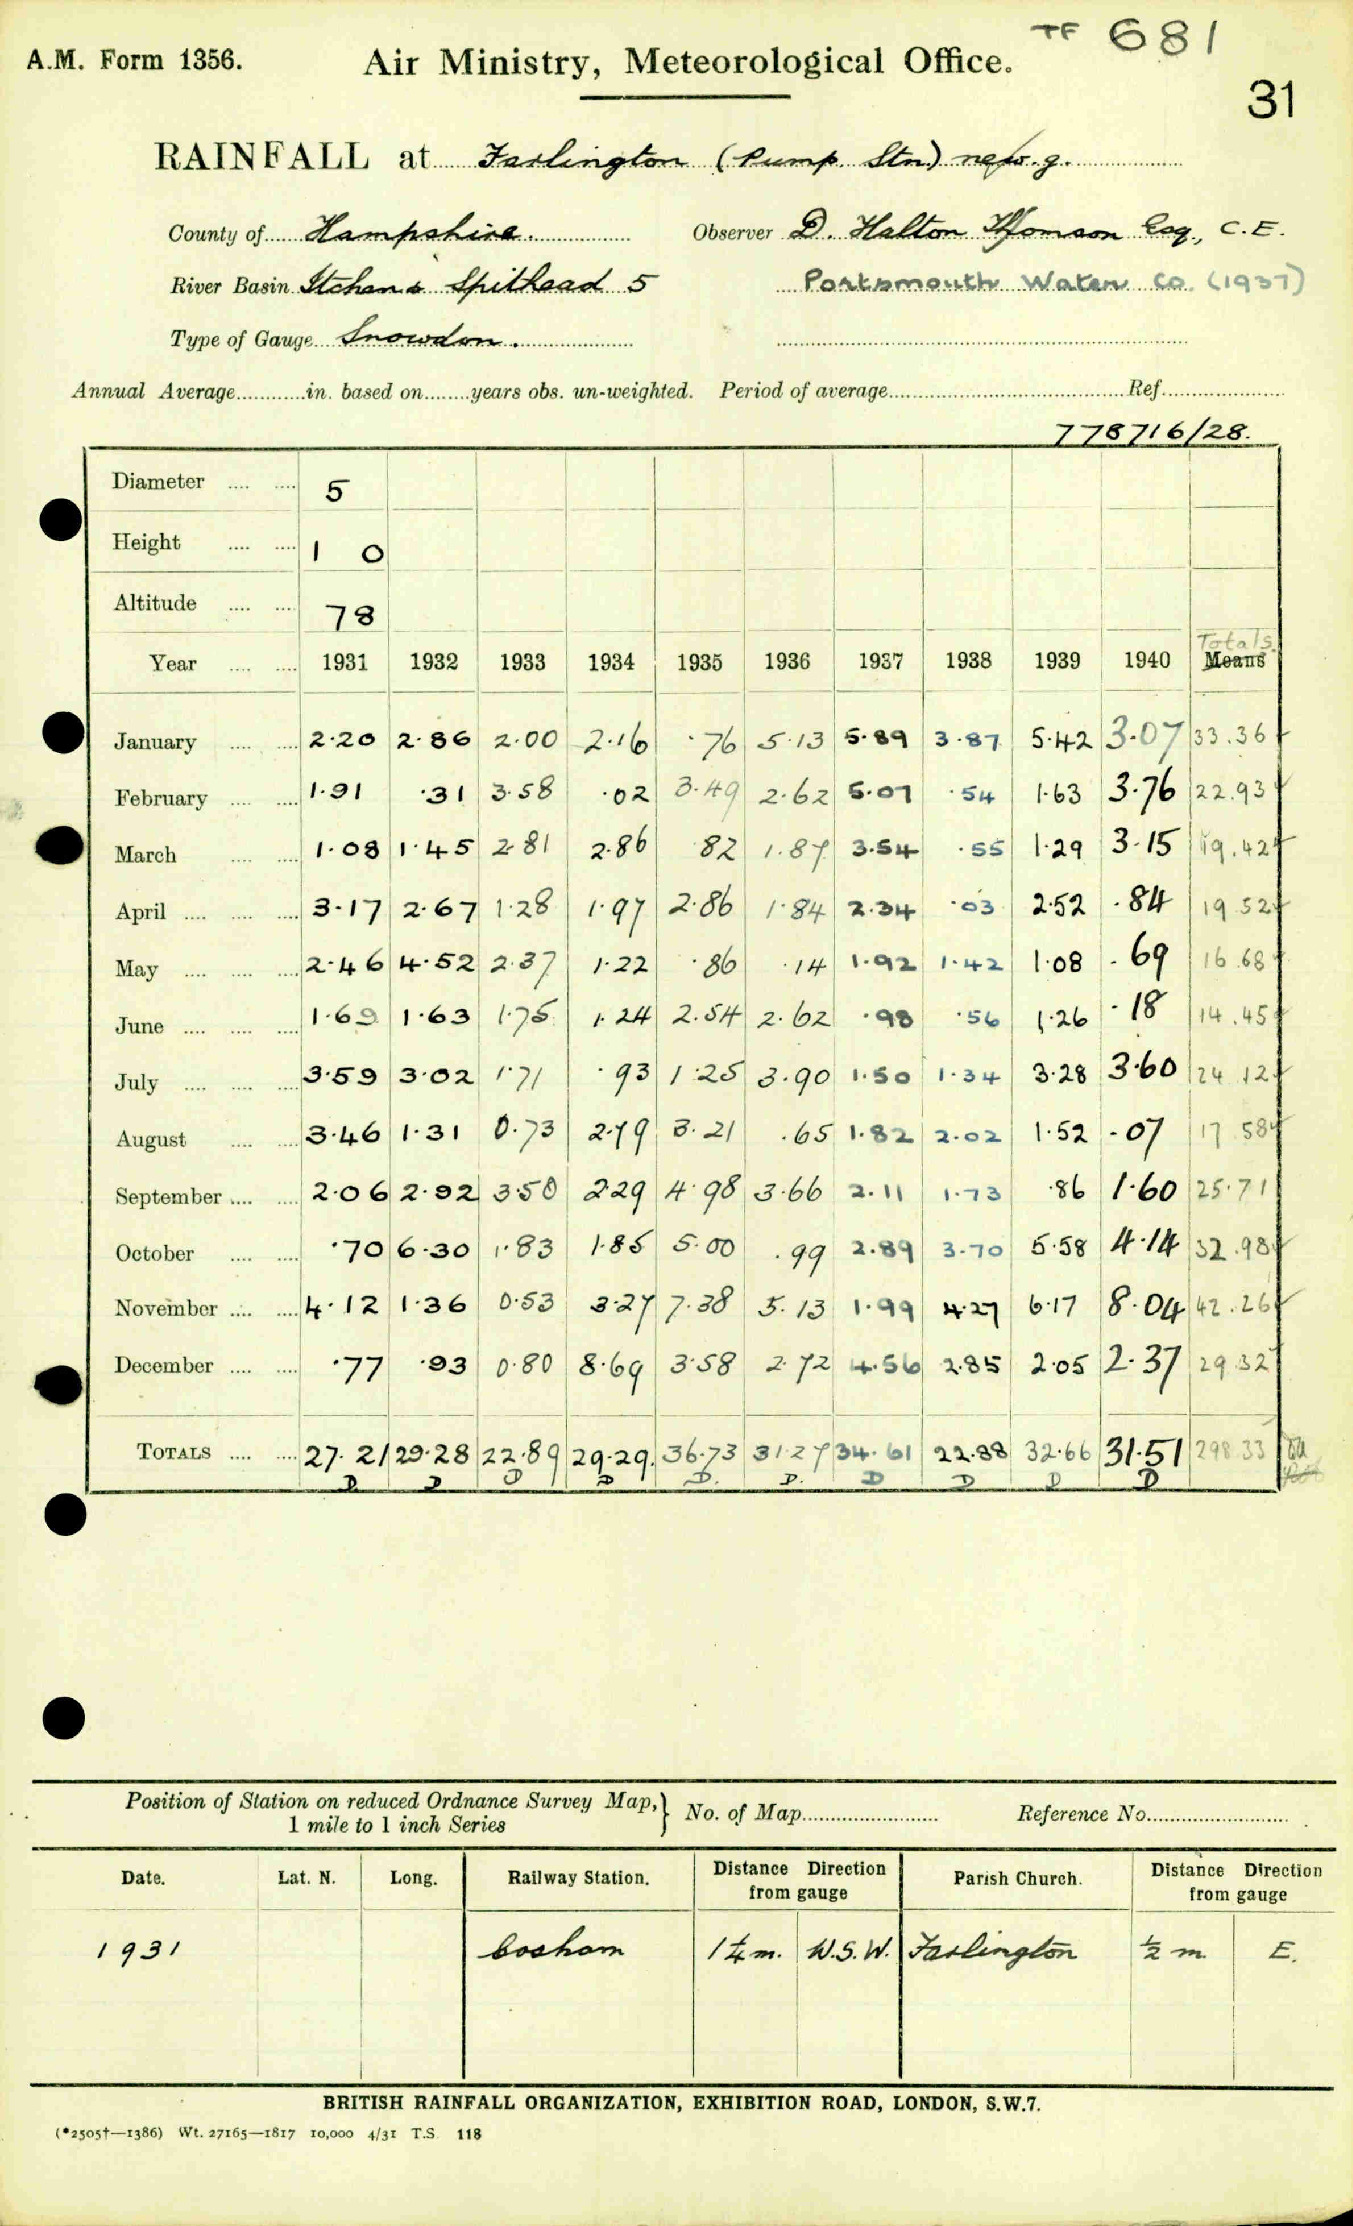 TF 681
A.M. Form 1356.
Air Ministry, Meteorological Office.
31
RAINFALL at Farlington (Pump. Stn)
County of Hampshire. Observer D. Halton Thomson Esq., C.E.
River Basin Itchen & Spithead 5 Portsmouth Water Co. (1937)
Type of Gauge Snowdon.
Annual Average in. based on years obs. un-weighted. Period of average Ref.
778716/28.
Diameter 5
Height 1 0
Altitude 78
Totals
Year 1931 1932 1933 1934 1935 1936 1937 1938 1939 1940 Means
January 2.20 2.86 2.00 2.16 .76 5.13 5.89 3.87 5.42 3.07 33.36
February 1.91 .31 3.58 .02 3.49 2.62 5.07 .54 1.63 3.76 22.93
March 1.08 1.45 2.81 2.86 82 1.87 3.54 .55 1.29 3.15 19.42
April 3.17 2.67 1.28 1.97 2.86 1.84 2.34 .03 2.52 .84 19 52
May 2.46 4.52 2.37 1.22 .86 .14 1.92 1.42 1.08 .69 16.68
June 1.69 1.63 1.75 1.24 2.54 2.62 .98 .56 1.26 .18 14.45
July 3.59 3.02 1.71 .93 1.25 3.90 1.50 1.34 3.28 3.60 24 12
August 3.46 1.31 0.73 2.79 3.21 .65 1.82 2.02 1.52 .07 17 58
September 2.06 2.92 3.50 2.29 4.98 3.66 2.11 1.73 .86 1.60 25.71
October .70 6.30 1.83 1.85 5.00 .99 2.89 3.70 5.58 4.14 32.98
November 4.12 1.36 0.53 3.27 7.38 5.13 1.99 4.27 6.17 8.04 42.26
December .77 .93 0.80 8.69 3.58 2.72 4.56 2.85 2.05 2.37 29.32
TOTALS 27.21 29.28 22.89 29.29. 36.73 31.27 34.61 22.88 32.66 31.51 298.33
D D D D D. D. D D D D
Position of Station on reduced Ordnance Survey Map,} No. of Map Reference No.
1 mile to 1 inch Series
Date. Lat. N. Long. Railway Station. Distance Direction from gauge Parish Church. Distance Direction from gauge
1931 Cosham 1¼ m. W.S.W. Farlington ½ m. E.
BRITISH RAINFALL ORGANIZATION, EXHIBITION ROAD, LONDON, S.W.7.
(*2505†—1386) Wt. 27165—1817 10,000 4/31 T.S. 118